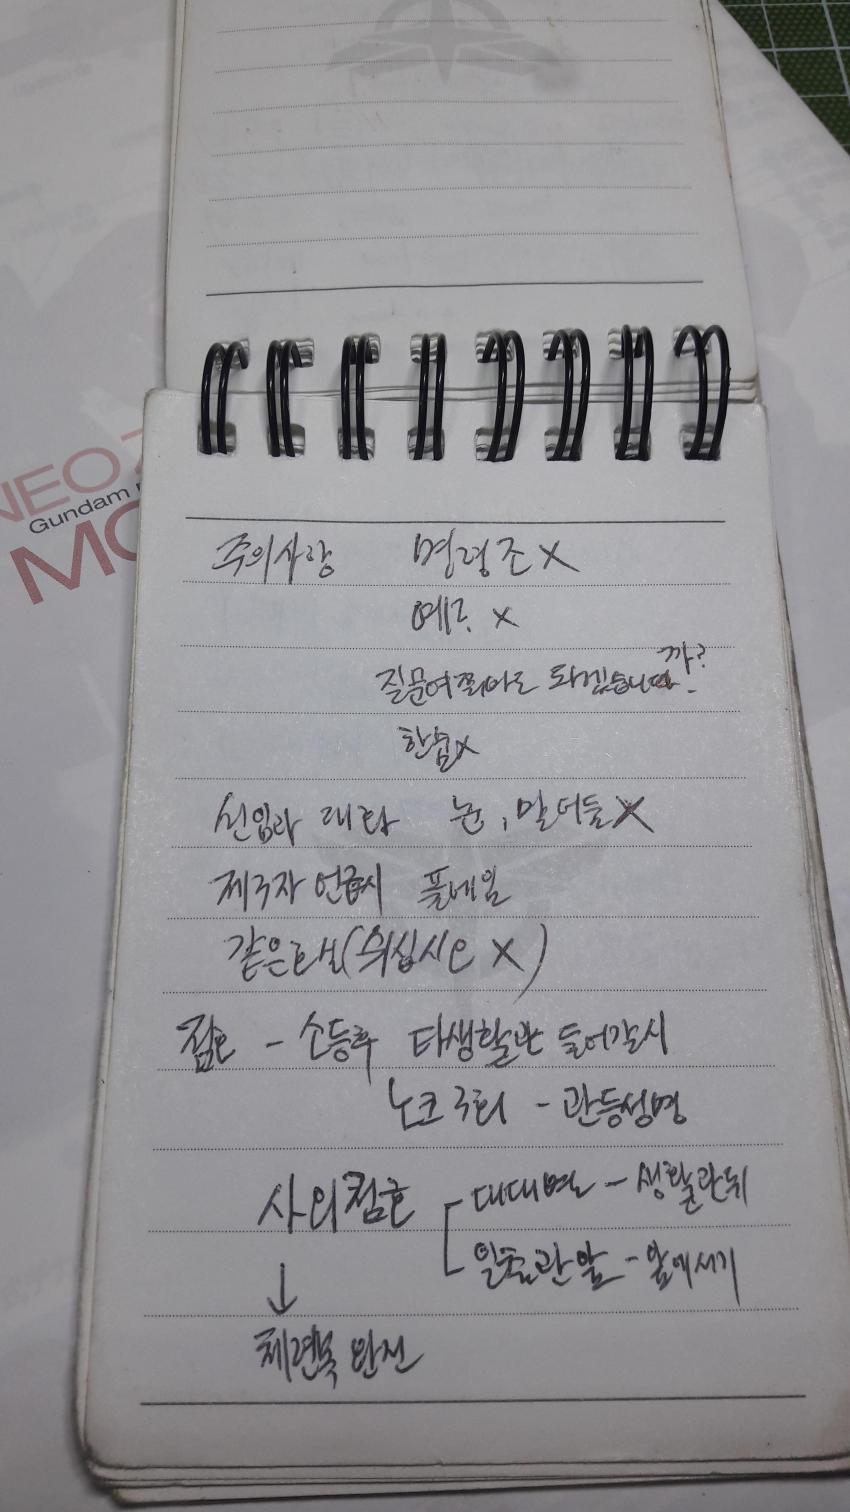 NEO Z
Gundam
MO
주의사항 명령조 X
예? X
질문여쭤봐도 되겠습니까?
한숨 X
신입과 대화 눈, 말더듬 X
제3자 언급시 풀네임
같은호실 (쉬십시오 X)
점호 - 소등후 타생활관 들어갈시
노크 3회 - 관등성명
사외점호 대대면 - 생활관 뒤
일출관 앞 - 앞에서기
↓
체련복 완전